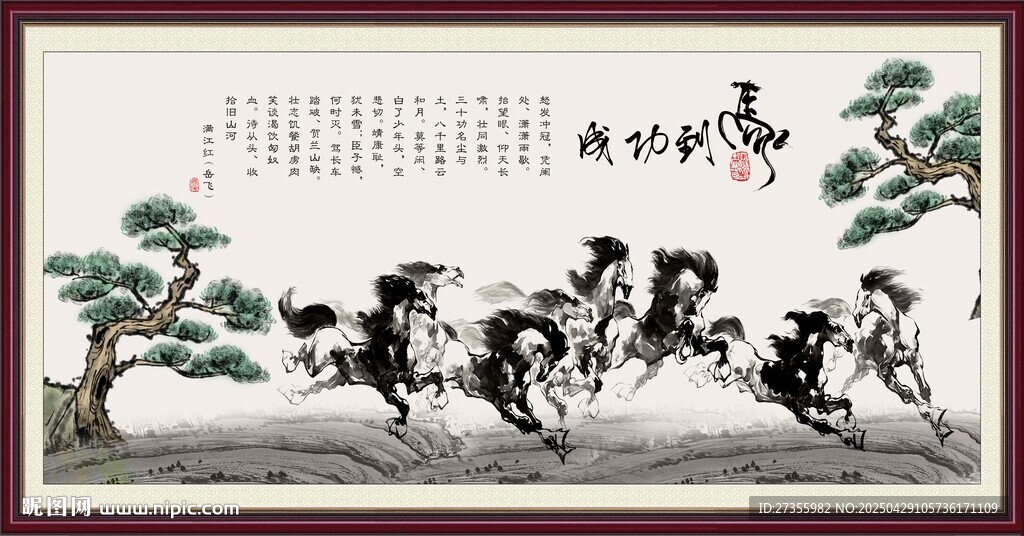 馬到功成
怒发冲冠，凭阑
处、潇潇雨歇。
抬望眼、仰天长
啸，壮怀激烈。
三十功名尘与
土，八千里路云
和月。莫等闲、
白了少年头，空
悲切。靖康耻，
犹未雪；臣子憾，
何时灭。驾长车
踏破、贺兰山缺。
壮志饥餐胡虏肉
笑谈渴饮匈奴
血。待从头、收
拾旧山河
满江红（岳飞）
昵图网 www.nipic.com
ID:27355982 NO:20250429105736171109